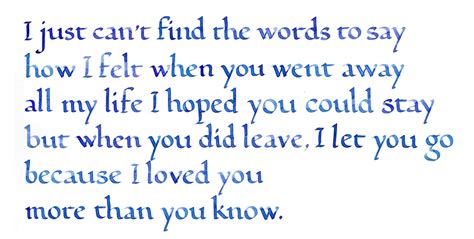 I just can't find the words to say
how I felt when you went away
all my life I hoped you could stay
but when you did leave, I let you go
because I loved you
more than you know.